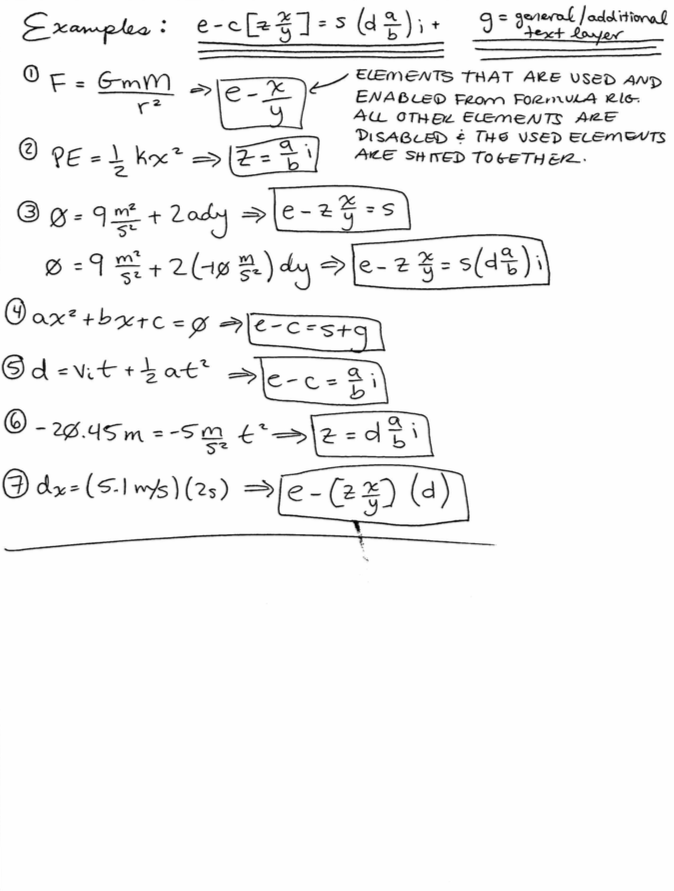 Examples: e-c[z x/y] = s (d a/b) i + g = general/additional text layer
① F = GmM/r² ⇒ e - x/y ELEMENTS THAT ARE USED AND
ENABLED FROM FORMULA RIG.
ALL OTHER ELEMENTS ARE
DISABLED & THE USED ELEMENTS
ARE SHITED TOGETHER.
② PE = 1/2 kx² ⇒ z = a/b i
③ Ø = 9 m²/s² + 2ady ⇒ e - z x/y = s
Ø = 9 m²/s² + 2(-10 m/s²) dy ⇒ e - z x/y = s(d a/b) i
④ ax² + bx + c = Ø ⇒ e - c = s + g
⑤ d = vᵢt + 1/2 at² ⇒ e - c = a/b i
⑥ -20.45m = -5 m/s² t² ⇒ z = d a/b i
⑦ dx = (5.1 m/s)(2s) ⇒ e - [z x/y] (d)